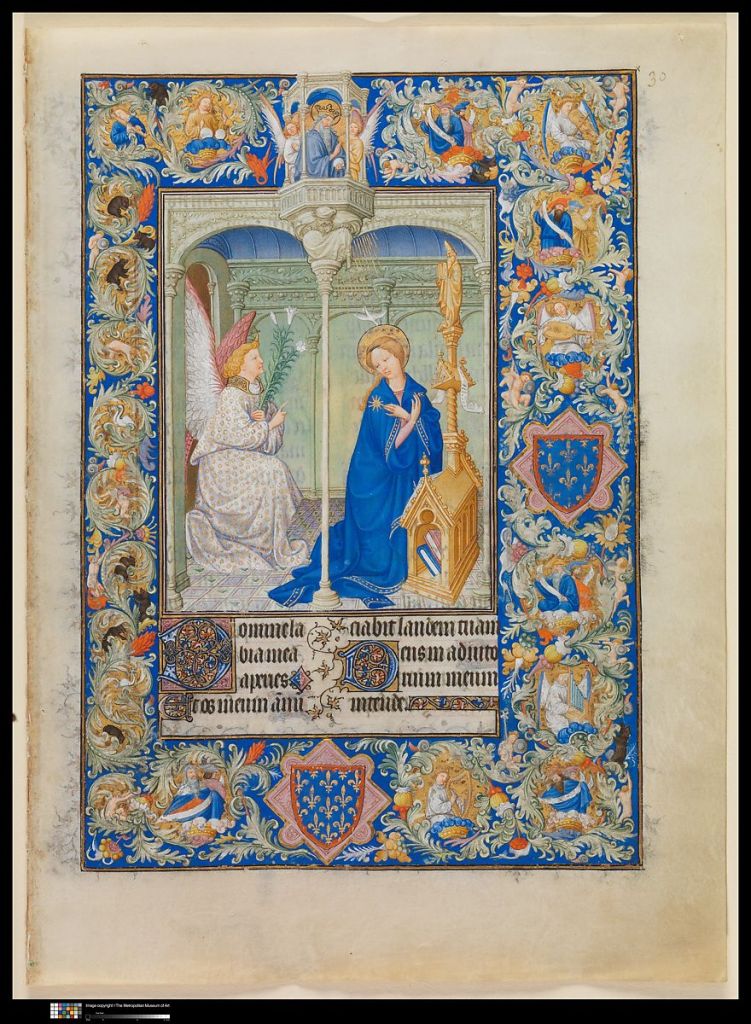 30
Domine la
bia mea
aperies
Et os meum ãnu
ciabit laudem tuam
Deus in adiuto
rium meum
intende.
Image copyright | The Metropolitan Museum of Art